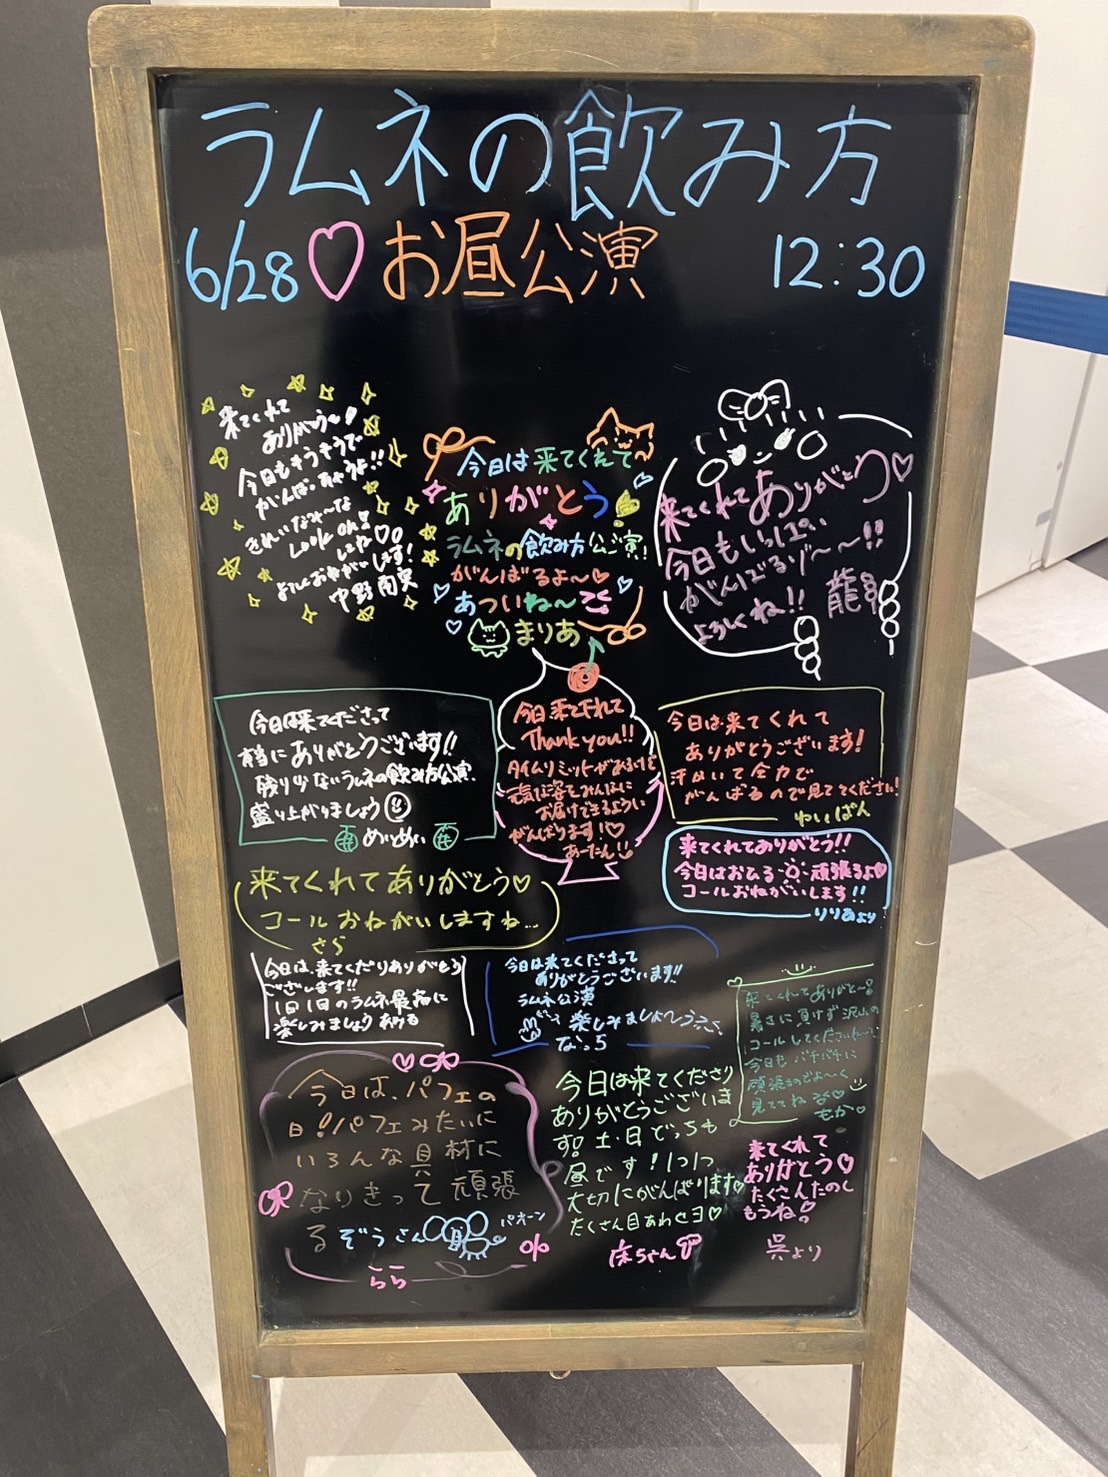 ラムネの飲み方
6/28♡お昼公演 12:30
来てくれて
ありがとう〜!
今日もキラキラで
がんばっちゃうよ!!
きれいなみ〜な
Look on!
よろしくおねがいします!
中野
今日は来てくれて
ありがとう
ラムネの飲み方公演!
がんばるよ〜♡
あついね〜
まりあ
来てくれてありがとう♡
今日もいっぱい
がんばるゾ〜〜!!
よろしくね!!
龍
今日は来てくださって
本当にありがとうございます!!
残り少ないラムネの飲み方公演
盛り上がりましょう
めいめい
今日来て下れて
Thank you!!
タイムリミットがあるけど
元気な姿をみんなに
お届けできるように
がんばります!♡
あーたん
今日は来てくれて
ありがとうございます!
汗かいて全力で
がんばるので見ててください!
ゆいぱん
来てくれてありがとう!!
今日はおひる 頑張るよ♡
コールおねがいします!!
りりあより
来てくれてありがとう♡
コールおねがいしますね...
さら
今日は、来てくださりありがとう
ございます!!
1日1日のラムネ最高に
楽しみましょう
今日は来てくださって
ありがとうございます!!
ラムネ公演
楽しみましょ〜う
なっち
来てくれてありがと〜
暑さに負けず沢山の
コールしてくださいね〜
今日もバチバチに
頑張るのでよ〜く
見ててね♡
もか♡
今日は、パフェの
日!パフェみたいに
いろんな具材に
なりきって頑張
る ぞうさん パオーン
らら
今日は来てくださり
ありがとうございま
す! 土・日どっちも
昼です!1つ1つ
大切にがんばります♡
たくさん目あわせヨ♡
来てくれて
ありがとう♡
たくさんたのし
もうね!
呉より